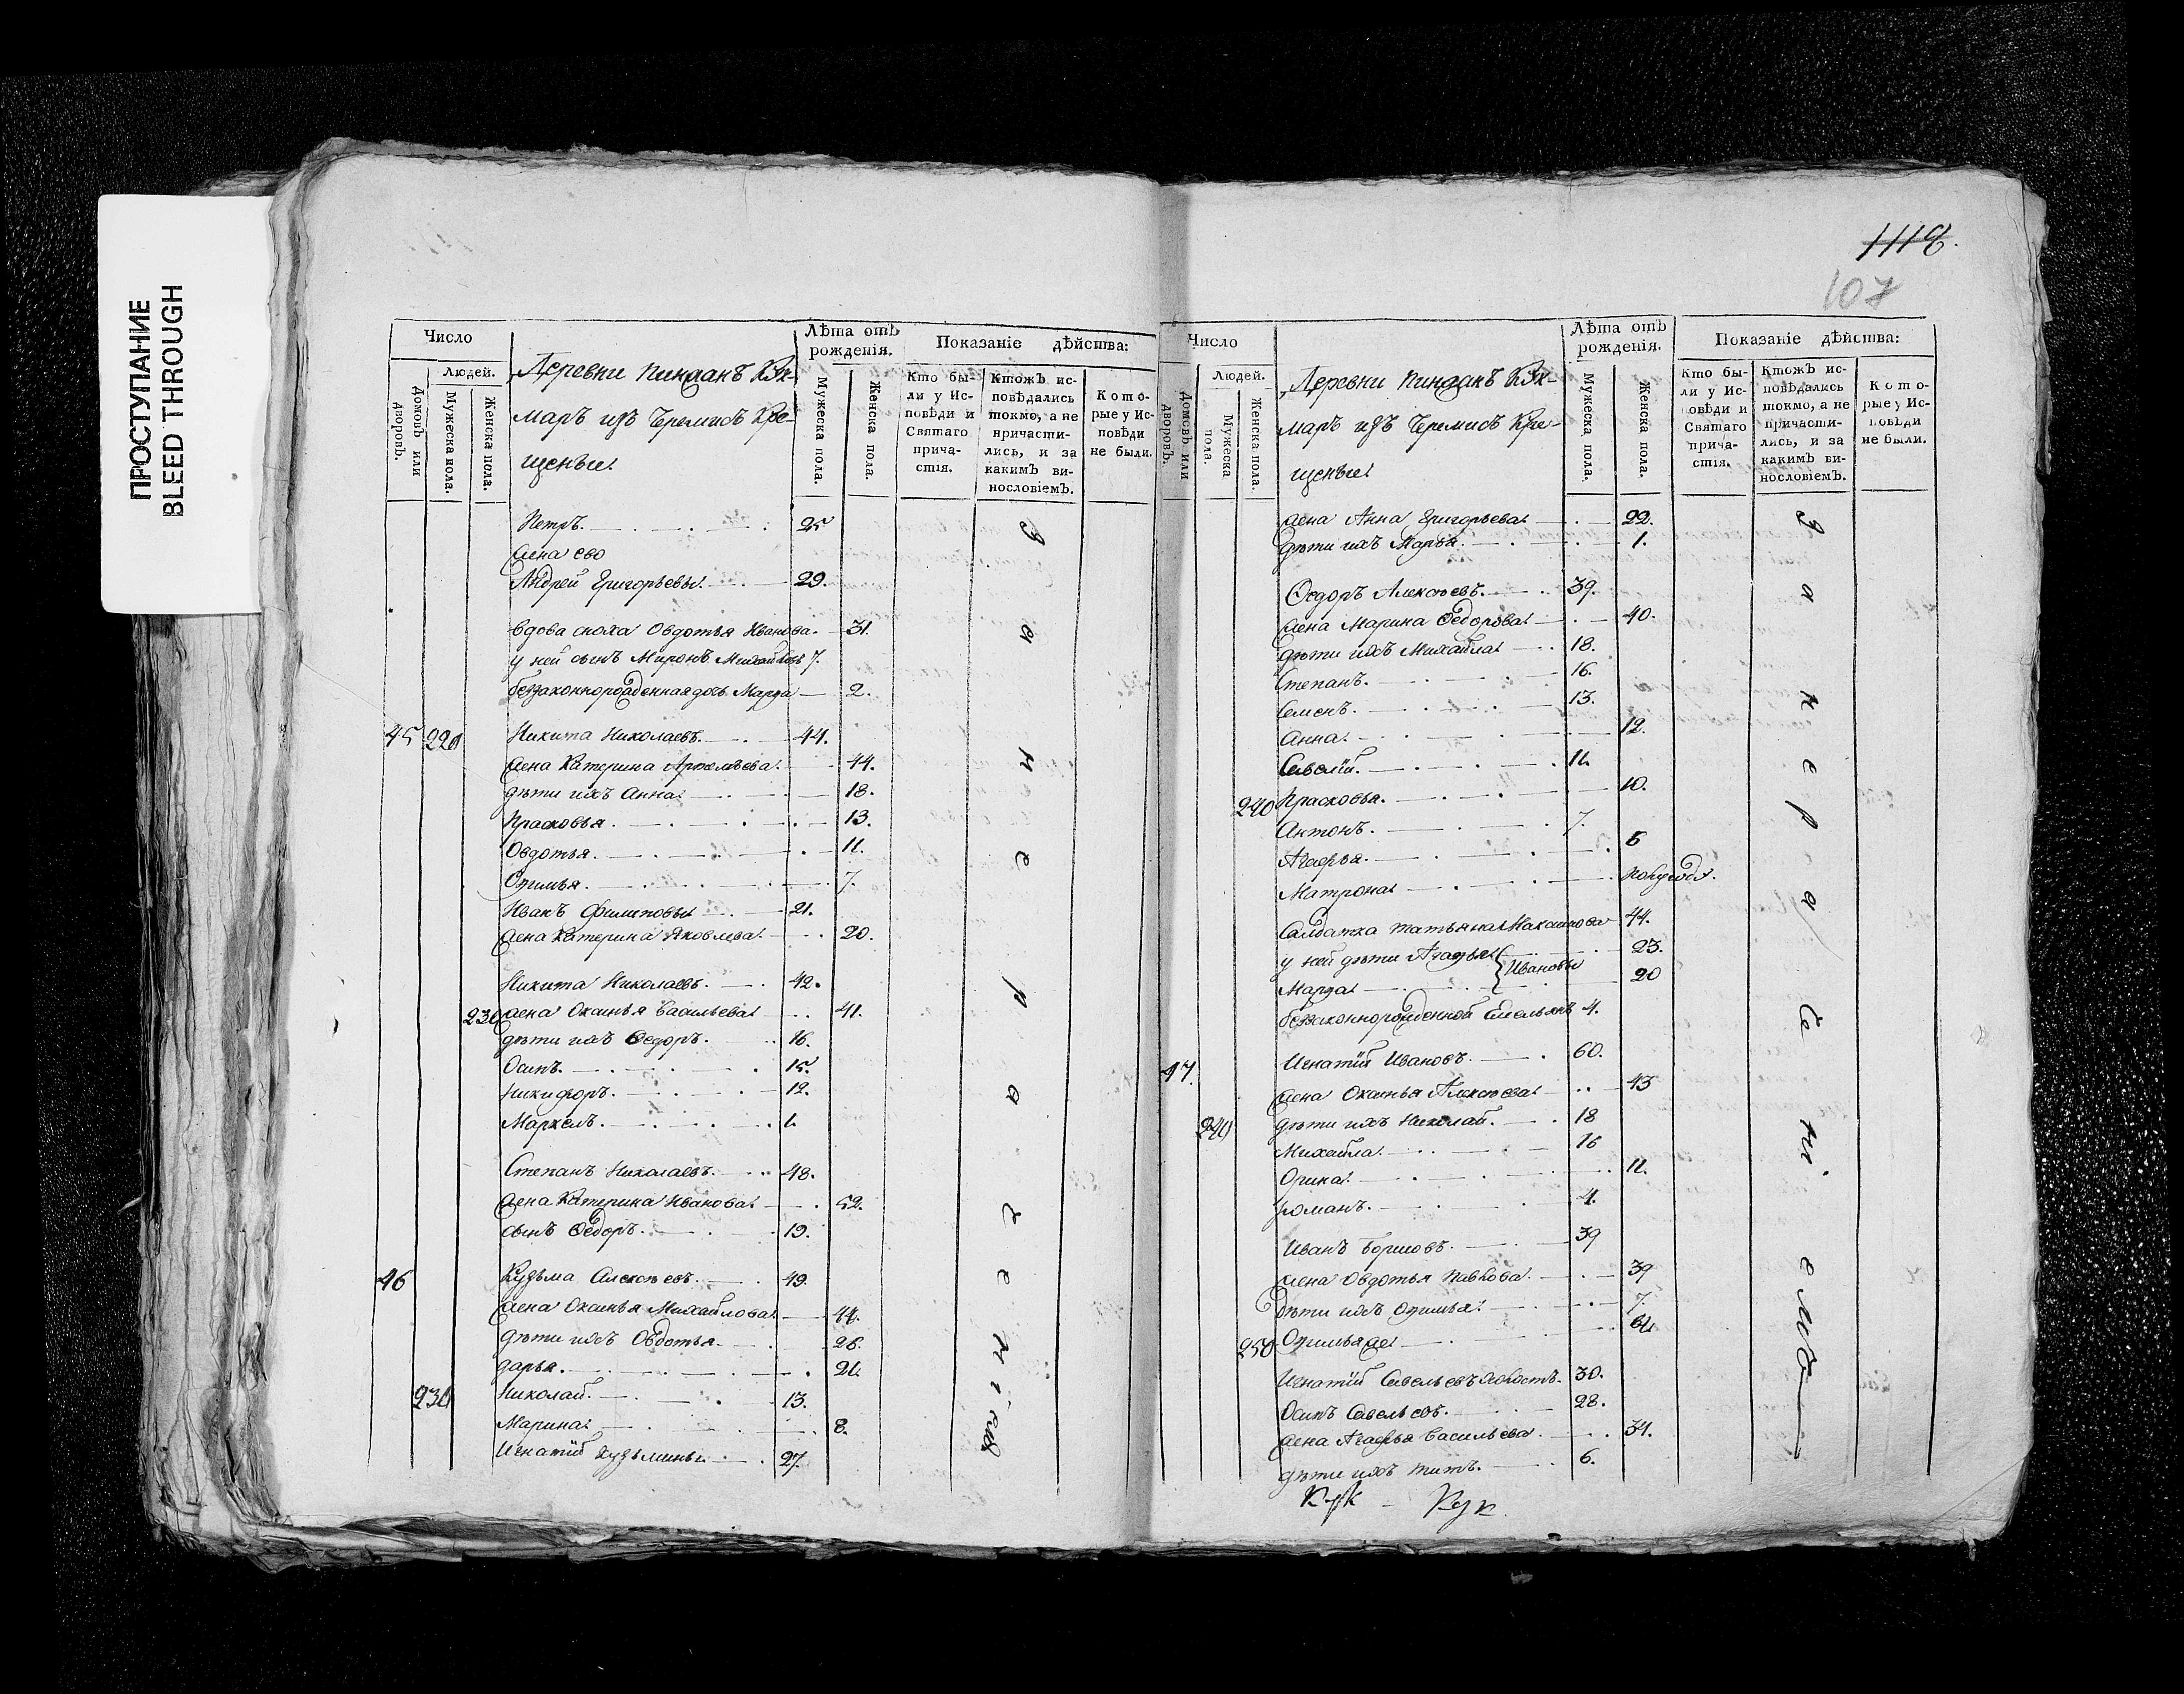 ПРОСТУПАНИЕ
BLEED THROUGH
1118.
107
Число
Людей.
Домовъ или дворовъ.
Мужеска пола.
Женска пола.
Деревни Пинданъ Кук-
маръ изъ Черемисъ Кре-
щеные
Лѣта отъ рожденія.
Мужеска пола.
Женска пола.
Показаніе дѣйства:
Кто бы-
ли у Ис-
повѣди и
Святаго
прича-
стія.
Ктожъ ис-
повѣдались
токмо, а не
причасти-
лись, и за
какимъ ви-
нословіемъ.
Кото-
рые у Ис-
повѣди
не были.
Петръ. 25
жена ево
Андрей Григорьевы. 29.
вдова сноха Овдотья Иванова. 31.
у ней сынъ Миронъ Михайловъ 7.
беззаконнорожденная дочь Марѳа 2.
45 220 Никита Николаевъ. 44.
жена Катерина Артемьева. 44.
дѣти ихъ Анна. 18.
Прасковья. 13.
Овдотья. 11.
Офимья. 7.
Иванъ Филиповы 21.
жена Катерина Яковлева. 20.
Никита Николаевъ. 42.
230 жена Оксинья Васильева 41.
дѣти ихъ Ѳедоръ. 16.
Осипъ. 15.
Никифоръ. 12.
Маркелъ. 1.
Степанъ Николаевъ. 48.
жена Катерина Иванова. 52.
сынъ Ѳедоръ. 19.
46 Кузьма Алексѣевъ. 49.
жена Оксинья Михайлова. 44.
дѣти ихъ Овдотья. 26.
дарья. 21.
230 Николай. 13.
Марина. 8.
Игнатій Кузьмины. 27.
За не рачениемъ
Число
Людей.
Домовъ или дворовъ.
Мужеска пола.
Женска пола.
Деревни Пинданъ Кук-
маръ изъ Черемисъ Кре-
щеные
Лѣта отъ рожденія.
Мужеска пола.
Женска пола.
Показаніе дѣйства:
Кто бы-
ли у Ис-
повѣди и
Святаго
прича-
стія.
Ктожъ ис-
повѣдались
токмо, а не
причасти-
лись, и за
какимъ ви-
нословіемъ.
Кото-
рые у Ис-
повѣди
не были.
жена Анна Григорьева. 22.
дѣти ихъ Марья. 1.
Ѳедоръ Алексѣевъ. 39.
жена Марина Ѳедорова. 40.
дѣти ихъ Михайла. 18.
Степанъ. 16.
Семенъ. 13.
Анна. 12.
Савелій. 11.
240 Прасковья. 10.
Антонъ. 7.
Агафья. 5
Матрона. полугода.
Салдатка Татьяна Максимова 44.
у ней дѣти Агафья 23.
Марѳа Ивановы 20
беззаконнорожденной Емельянъ 4.
47. Игнатій Ивановъ. 60.
жена Оксинья Алексѣева. 43
240 дѣти ихъ Николай. 18
Михайла. 16
Орина. 11.
романъ. 4.
Иванъ Борисовъ. 39
жена Овдотья Павлова. 39
дѣти ихъ Офимья. 7.
250 Офимья же
Игнатій Савельевъ холостъ. 30.
Осипъ Савельевъ. 28.
жена Агафья Васильева. 34.
дѣти ихъ Титъ. 6.
За не рачениемъ
Кук - Кук.